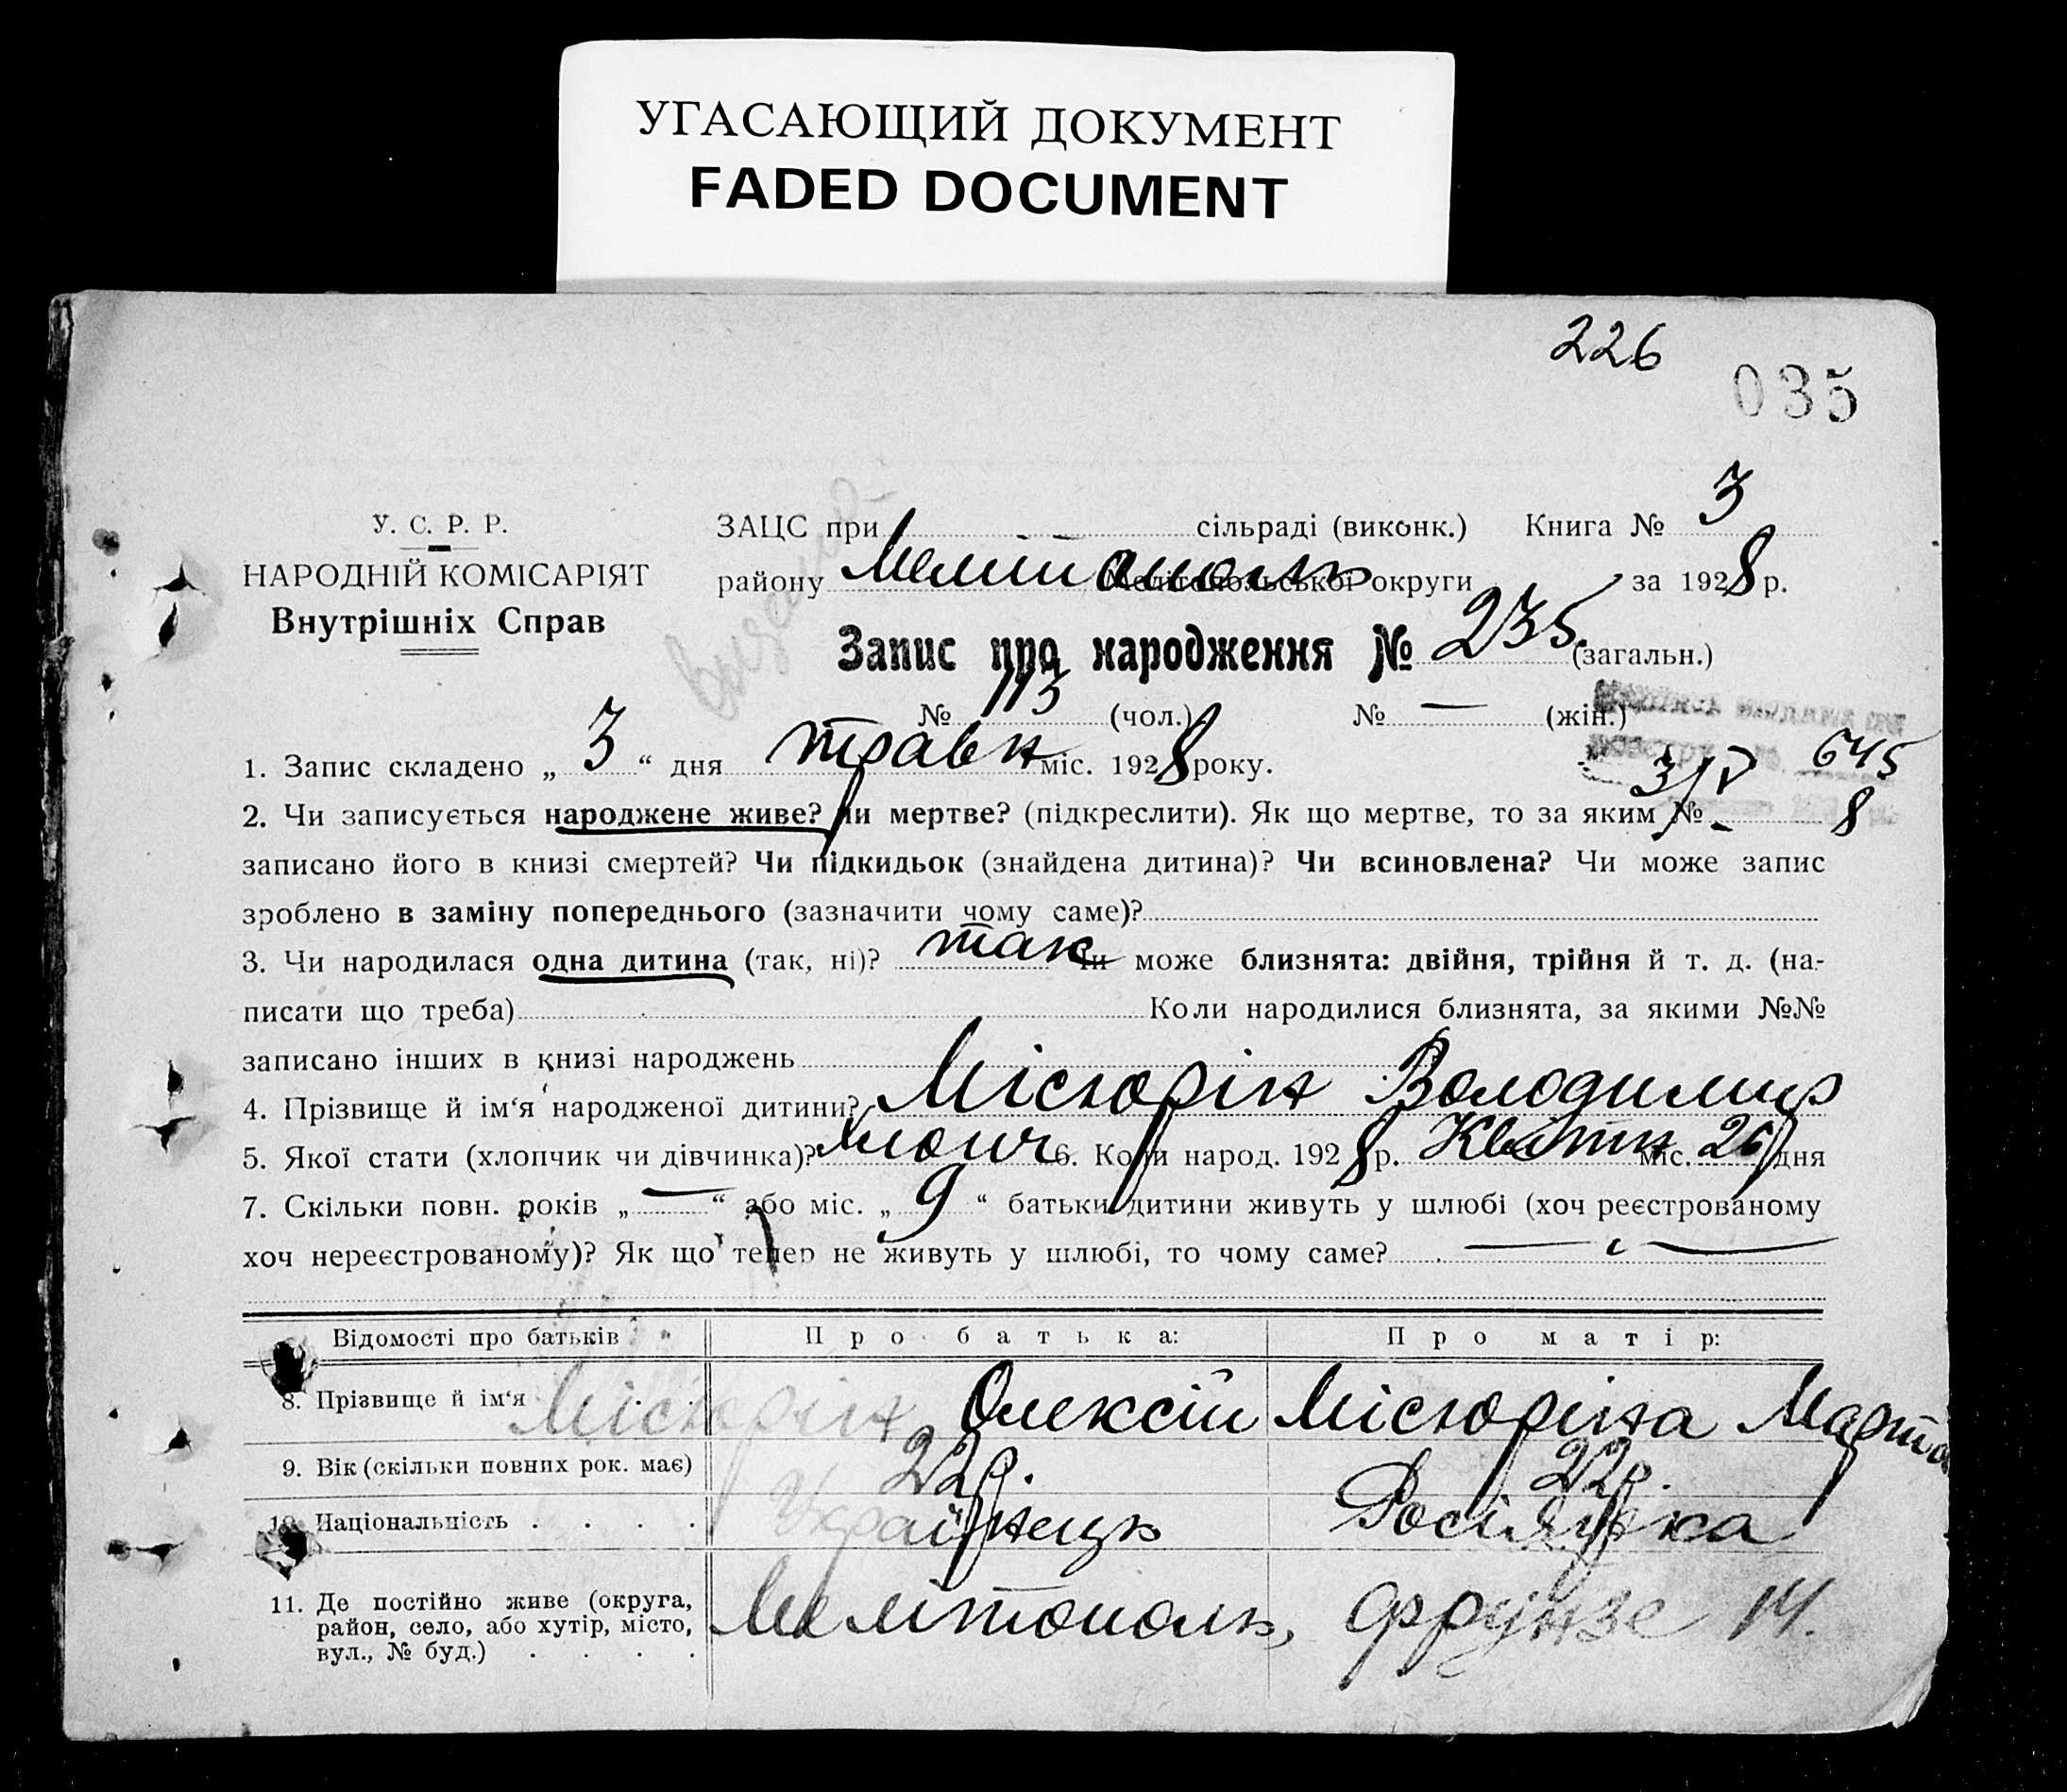 УГАСАЮЩИЙ ДОКУМЕНТ
FADED DOCUMENT
226
035
У. С. Р. Р.
НАРОДНІЙ КОМІСАРІЯТ
Внутрішніх Справ
видано
ЗАЦС при сільраді (виконк.) Книга № 3
району Мелітополь Мелітопольської округи за 1928 р.
Запис про народження № 235 (загальн.)
№ 113 (чол.) № — (жін.)
1. Запис складено „ 3 “ дня травн міс. 1928 року.
3/V 645
8
2. Чи записується народжене живе? чи мертве? (підкреслити). Як що мертве, то за яким № -
записано його в книзі смертей? Чи підкидьок (знайдена дитина)? Чи всиновлена? Чи може запис
зроблено в заміну попереднього (зазначити чому саме)?
3. Чи народилася одна дитина (так, ні)? так Чи може близнята: двійня, трійня й т. д. (на-
писати що треба) Коли народилися близнята, за якими №№
записано інших в книзі народжень
4. Прізвище й ім‘я народженої дитини? Місюрін Володимир
5. Якої стати (хлопчик чи дівчинка)? 6. Коли народ. 1928 р. Квітн міс. 26 дня
7. Скільки повн. років „ — “ або міс. „ 9 “ батьки дитини живуть у шлюбі (хоч реєстрованому
хоч нереєстрованому)? Як що тепер не живуть у шлюбі, то чому саме?
Відомості про батьків Про батька: Про матір:
8. Прізвище й ім‘я Місюрін Олексій Місюріна Марта
9. Вік (скільки повних рок. має) 22р. 22р.
10. Національність Українець Росіянка
11. Де постійно живе (округа, район, село, або хутір, місто, вул., № буд.) Мелітополь, Фрунзе 14.